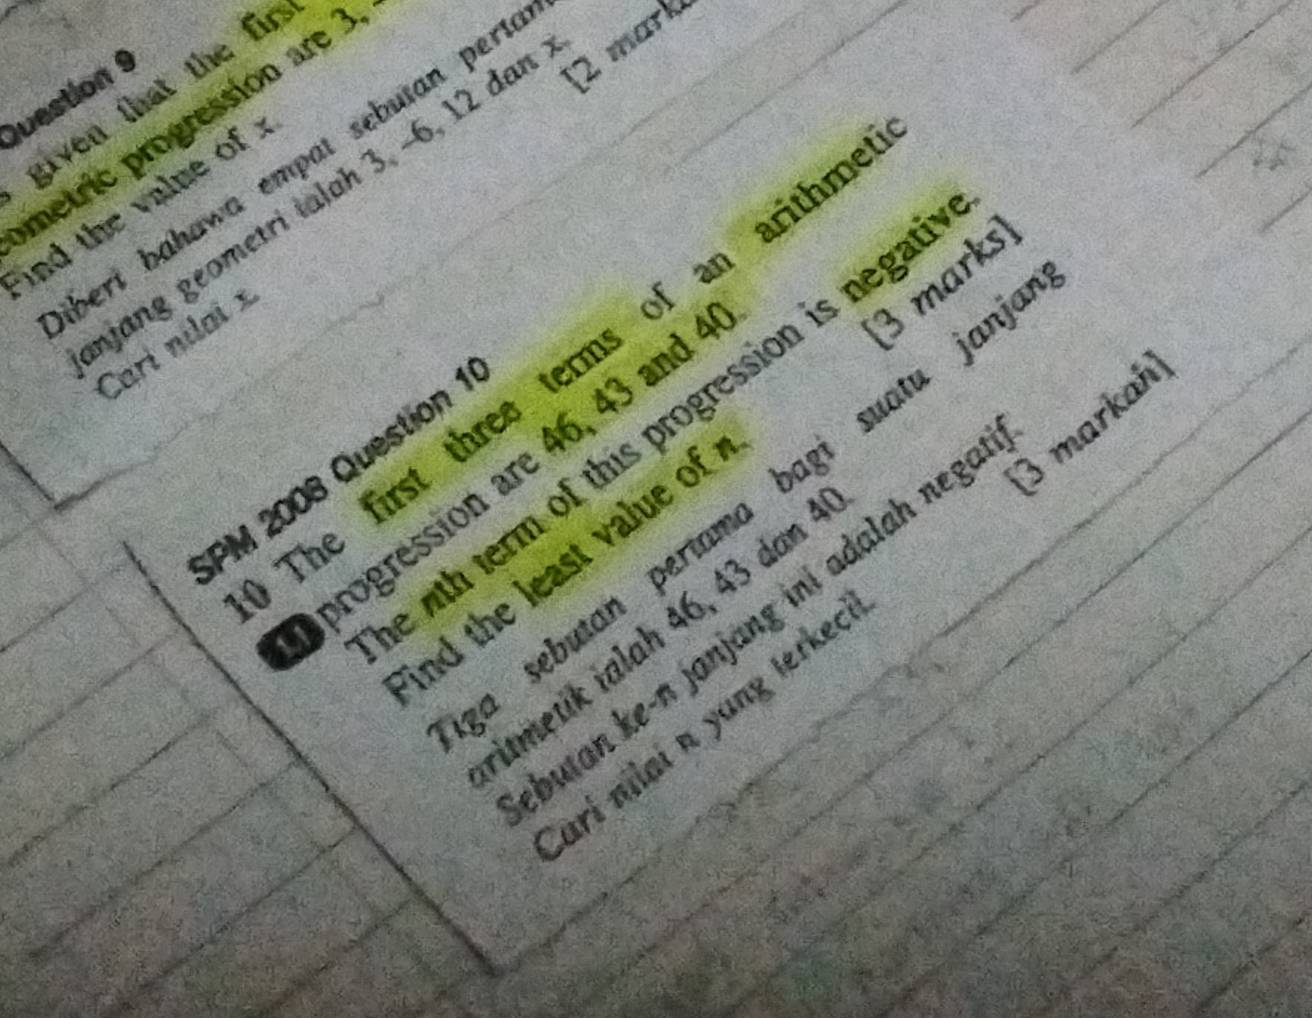 Question 9
given that the first
geometric progression are 3,
Find the value of x.
Diberi bahawa empat sebutan pertam
janjang geometri ialah 3, –6, 12 dan x.
Cari nilai x.
[2 mark
SPM 2008 Question 10
10 The first three terms of an arithmetic
progression are 46, 43 and 40.
The nth term of this progression is negative.
Find the least value of n.
[3 marks]
Tiga sebutan pertama bagi suatu janjang
aritmetik ialah 46, 43 dan 40.
Sebutan ke-n janjang ini adalah negatif.
Cari nilai n yang terkecil.
[3 markah]